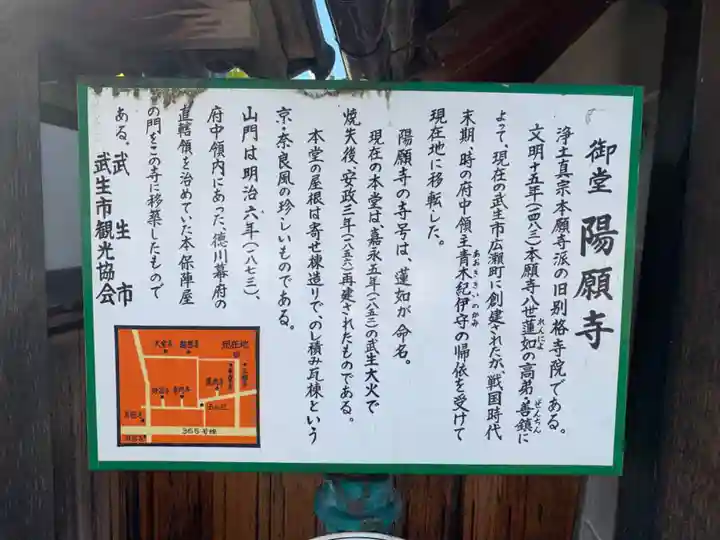 御堂 陽願寺
浄土真宗本願寺派の旧別格寺院である。
文明十五年(一四八三)本願寺八世蓮如の高弟・善鎮に
れんにょ
ぜんちん
よって、現在の武生市広瀬町に創建されたが、戦国時代
末期、時の府中領主青木紀伊守の帰依を受けて
あおききいのかみ
現在地に移転した。
陽願寺の寺号は、蓮如が命名。
現在の本堂は、嘉永五年(一八五二)の武生大火で
焼失後、安政三年(一八五六)再建されたものである。
本堂の屋根は寄せ棟造りで、のし積み瓦棟という
京・奈良風の珍しいものである。
山門は明治六年(一八七三)、
府中領内にあった、徳川幕府の
直轄領を治めていた本保陣屋
の門をこの寺に移築したもので
ある。
武生市
武生市観光協会
現在地
365号線